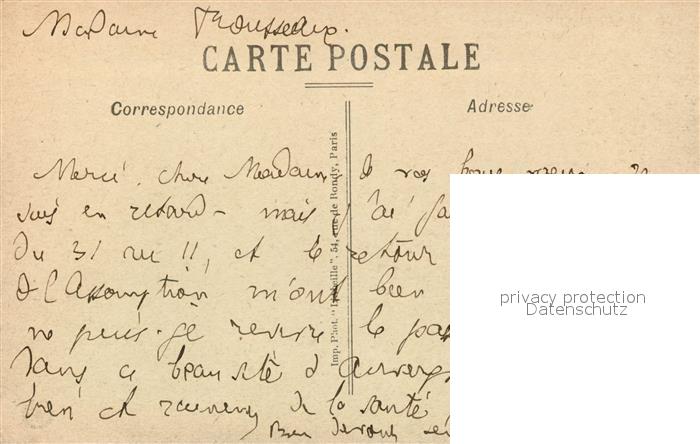 Madame Trousseaux.
CARTE POSTALE
Correspondance
Adresse
Imp. Phot. "L'Abeille". 54, rue de Bondy, Paris
Merci, chère Madame, de vos bons vœux. Je
suis en retard - mais j'ai
du 31 au 11, et le retour
de l'Assomption m'ont bien
ne puis-je revivre le
dans ce beau site d'Auverg
bien et de la santé
Bien
privacy protection
Datenschutz